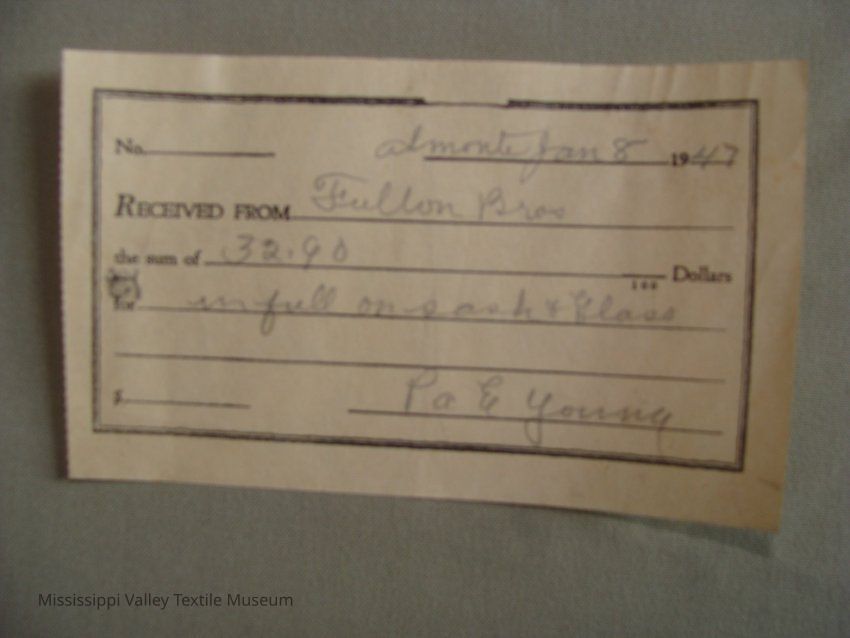 No. Almonte Jan 8 1947
RECEIVED FROM Fulton Bros
the sum of 32.90 Dollars
100
for in full on sash & Glass
$ E Young
Mississippi Valley Textile Museum